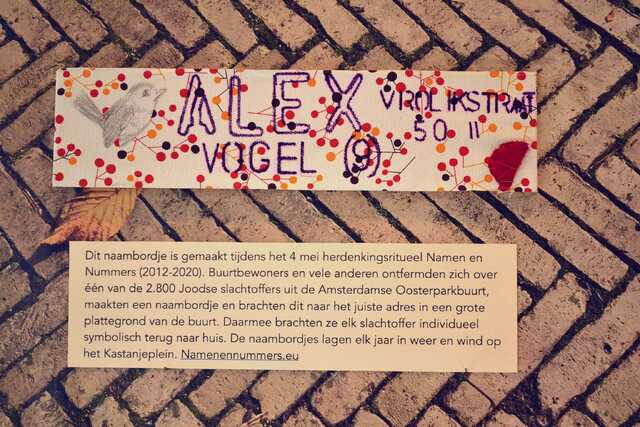 ALEX VROLIKSTRAAT
VOGEL (9) 50 II
Dit naambordje is gemaakt tijdens het 4 mei herdenkingsritueel Namen en
Nummers (2012-2020). Buurtbewoners en vele anderen ontfermden zich over
één van de 2.800 Joodse slachtoffers uit de Amsterdamse Oosterparkbuurt,
maakten een naambordje en brachten dit naar het juiste adres in een grote
plattegrond van de buurt. Daarmee brachten ze elk slachtoffer individueel
symbolisch terug naar huis. De naambordjes lagen elk jaar in weer en wind op
het Kastanjeplein. Namenennummers.eu